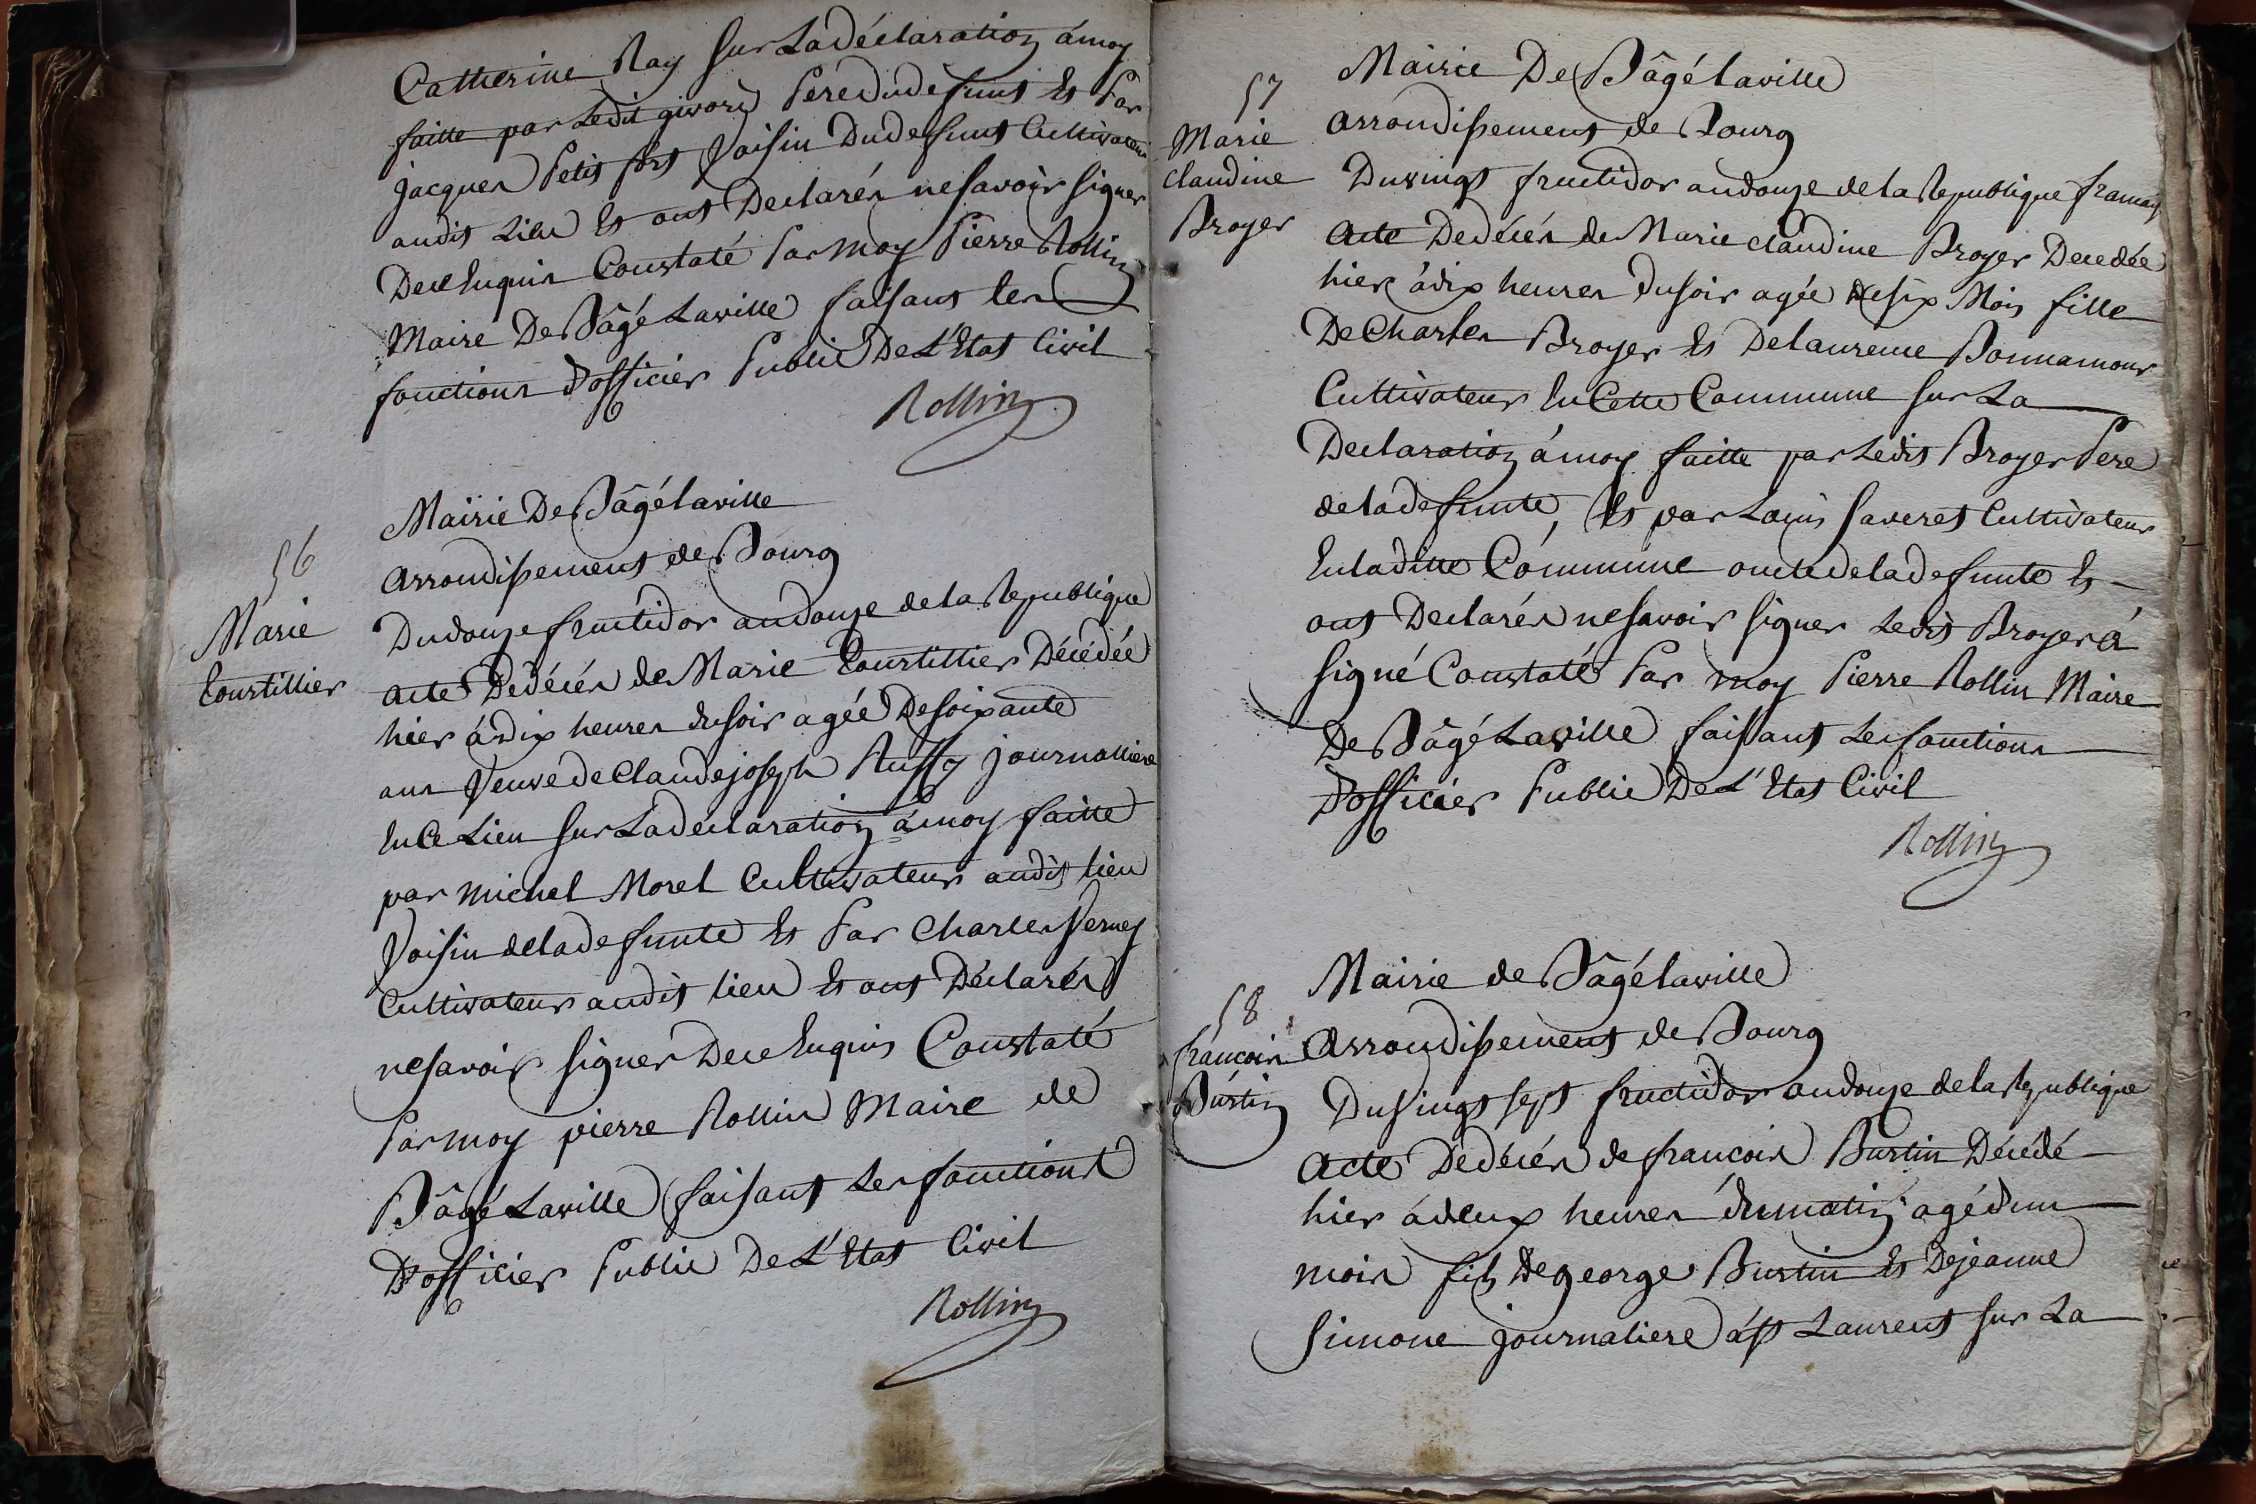 Catherine Ray sur La déclaration á moy
faitte par Ledit givord Pere du defunt Et Par
jacques Petit Voisin Du defunt Cultivateur
audit Lieu Et ont Declarés ne savoir signer
De ce Enquis Constaté Par moy Pierre Rollin
Maire De Bâgé Laville faisant les
fonctions d'officier Public De L'Etat Civil
Rollin
56
Marie
Courtillier
Mairie De Bâgé laville
arrondissement de Bourg
Du douze fructidor an douze de la Republique
acte De décés de Marie Courtillier Décédée
hier á dix heures du soir agée De soixante
ans Veuve de Claude joseph Ruffy journalliere
En Ce Lieu sur La déclaration á moy faitte
par michel Morel Cultivateur audit lieu
Voisin de la defunte Et Par Charles Verney
Cultivateur audit lieu Et ont Déclarés
ne savoir signer De ce Enquis Constaté
Par moy pierre Rollin Maire de
Bâgé Laville faisant Les fonctions
D'officier Public De L'Etat Civil
Rollin
57
Marie
claudine
Broyer
Mairie De Bâgé laville
arrondissement de Bourg
Du vingt fructidor an douze de la Republique francaise
acte De décés de Marie claudine Broyer Decedée
hier á dix heures du soir agée de six Mois fille
De Charles Broyer Et De laurence Bonnamour
Cultivateur En Cette Commune sur La
Declaration á moy faitte par Ledit Broyer Pere
de la defunte, Et par Louis saveret Cultivateur
En la ditte Commune oncle de la defunte Et
ont Declarés ne savoir signer Ledit Broyer á
signé Constaté Par moy Pierre Rollin Maire
De Bâgé Laville faisant Les fonctions
D'officier Public De L'Etat Civil
Rollin
58
francois
Burtin
Mairie de Bâgé laville
Arrondissement de Bourg
Du vingt sept fructidor an douze de la Republique
Acte De décés de francois Burtin Décédé
hier á deux heures du matin agé d'un
mois fils De george Burtin Et De jeanne
Simone journaliere á st Laurent sur La